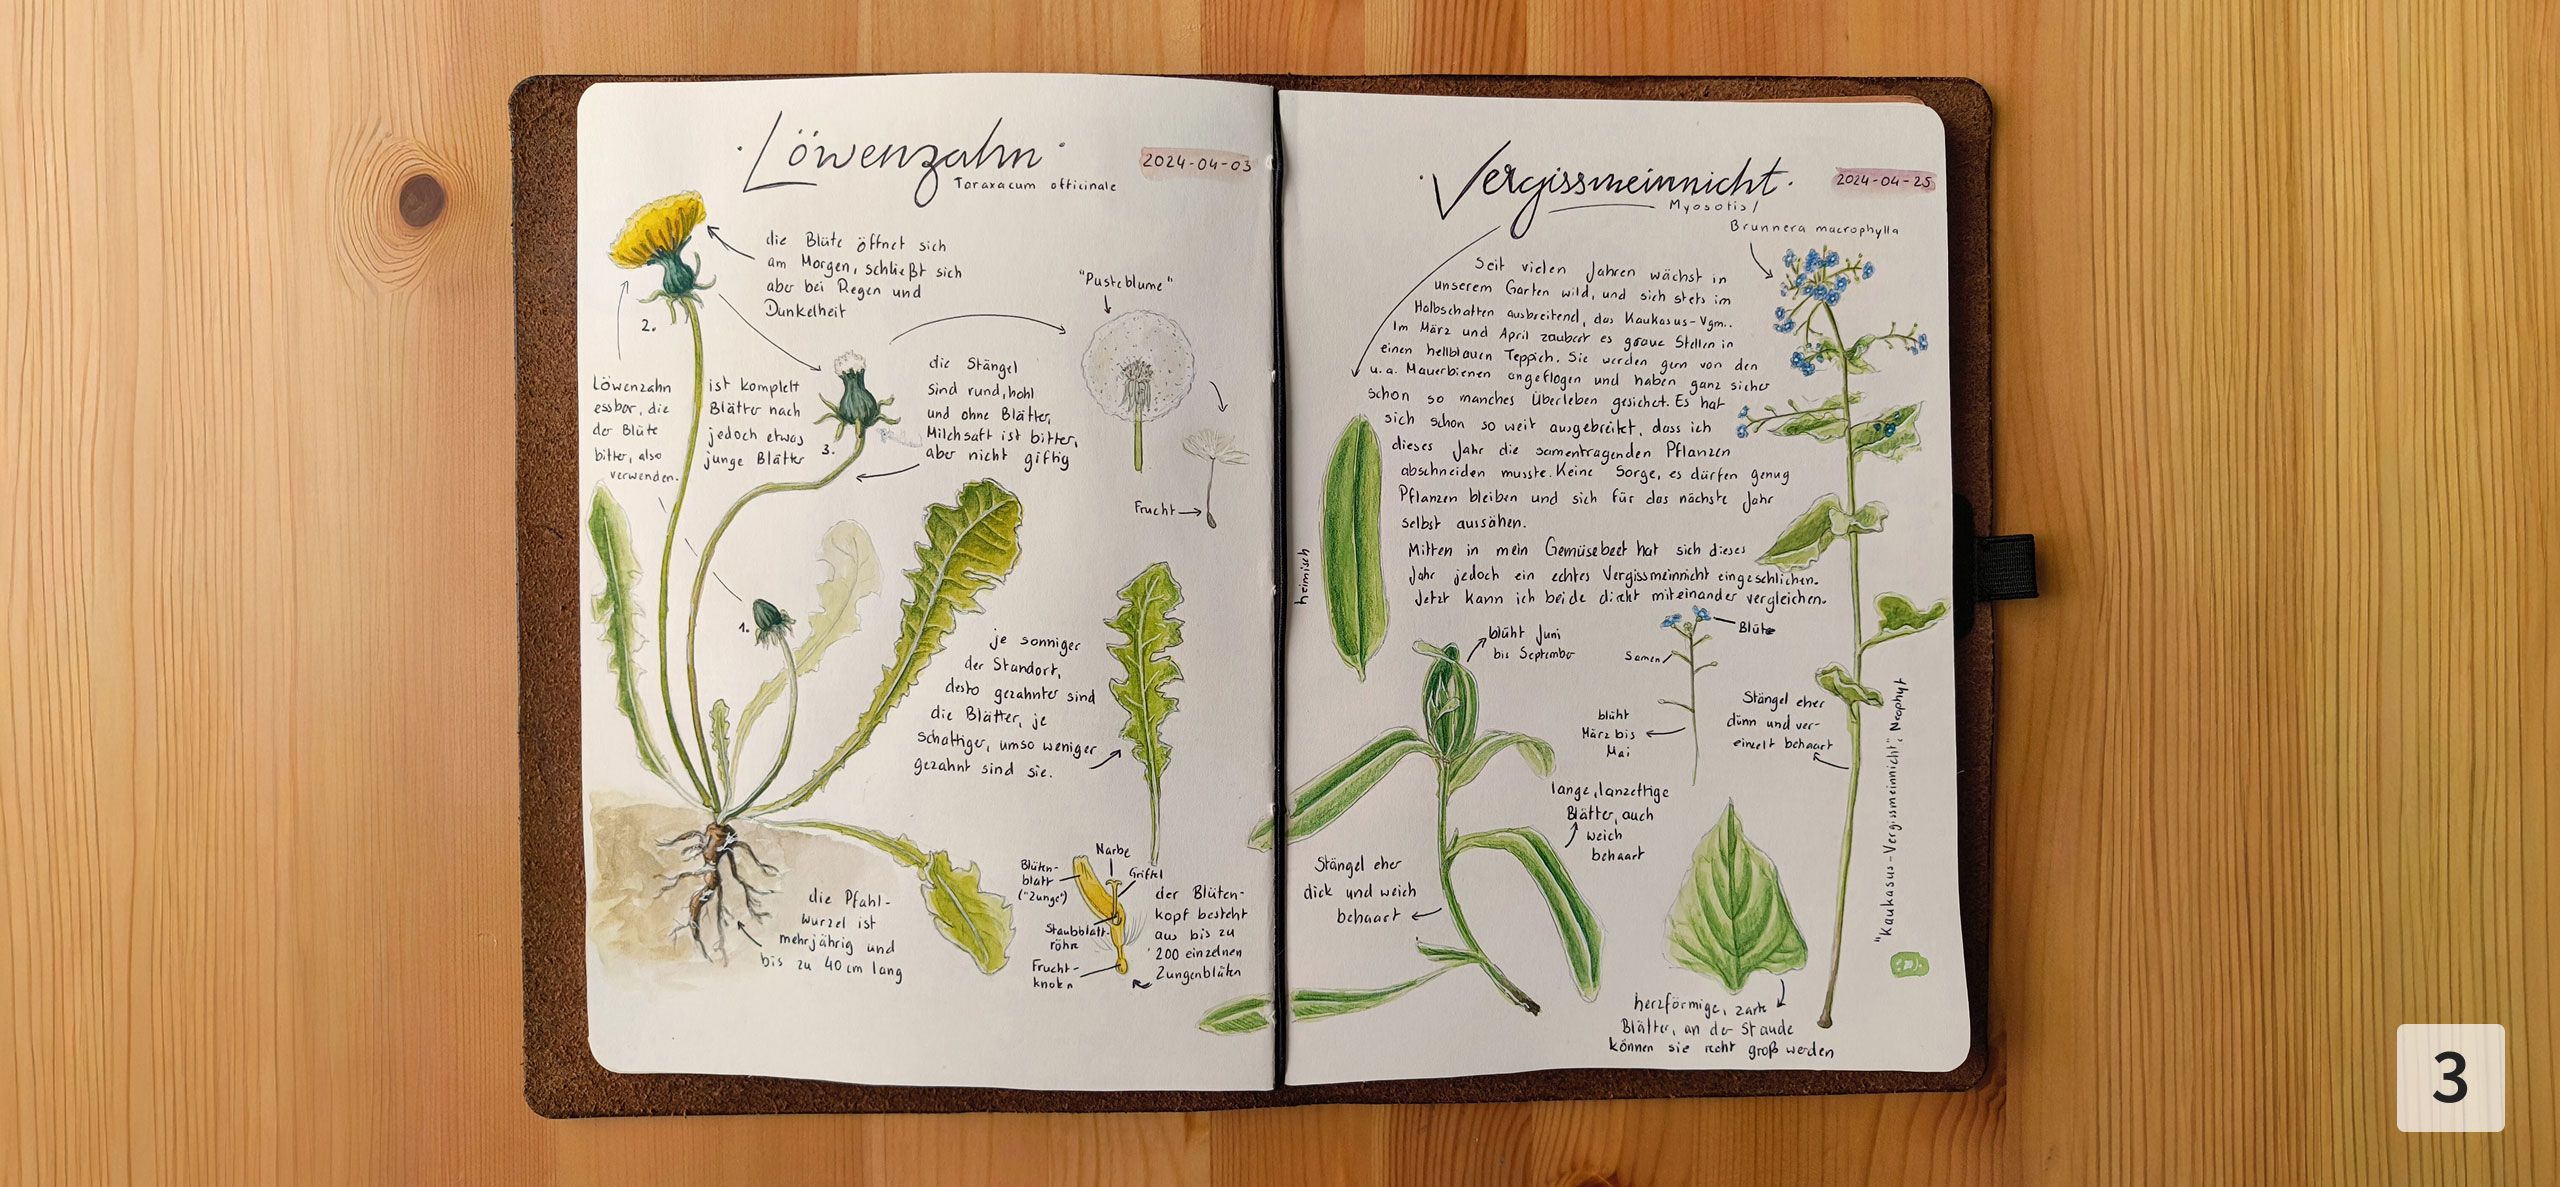 Löwenzahn
Taraxacum officinale
2024-04-03
die Blüte öffnet sich
am Morgen, schließt sich
aber bei Regen und
Dunkelheit
"Pusteblume"
2.
Löwenzahn ist komplett
essbar, die Blätter nach
der Blüte jedoch etwas
bitter, also junge Blätter
verwenden.
3.
die Stängel
sind rund, hohl
und ohne Blätter,
Milchsaft ist bitter,
aber nicht giftig
Frucht
1.
je sonniger
der Standort,
desto gezahnter sind
die Blätter, je
schattiger, umso weniger
gezahnt sind sie.
die Pfahl-
wurzel ist
mehrjährig und
bis zu 40 cm lang
Blüten-
blatt
("Zunge")
Narbe
Griffel
Staubblatt-
röhre
Frucht-
knoten
der Blüten-
kopf besteht
aus bis zu
200 einzelnen
Zungenblüten
Vergissmeinnicht
2024-04-25
Myosotis/
Brunnera macrophylla
Seit vielen Jahren wächst in
unserem Garten wild, und sich stets im
Halbschatten ausbreitend, das Kaukasus-Vgm..
Im März und April zaubert es graue Stellen in
einen hellblauen Teppich. Sie werden gern von den
u.a. Mauerbienen angeflogen und haben ganz sicher
schon so manches Überleben gesichert. Es hat
sich schon so weit ausgebreitet, dass ich
dieses Jahr die samentragenden Pflanzen
abschneiden musste. Keine Sorge, es dürfen genug
Pflanzen bleiben und sich für das nächste Jahr
selbst aussähen.
Mitten in mein Gemüsebeet hat sich dieses
Jahr jedoch ein echtes Vergissmeinnicht eingeschlichen.
Jetzt kann ich beide direkt miteinander vergleichen.
heimisch
blüht Juni
bis September
Blüte
Samen
blüht
März bis
Mai
Stängel eher
dünn und ver-
einzelt behaart
lange, lanzettige
Blätter, auch
weich
behaart
Stängel eher
dick und weich
behaart
"Kaukasus-Vergissmeinnicht", Neophyt
herzförmige, zarte
Blätter, an der Staude
können sie recht groß werden
3